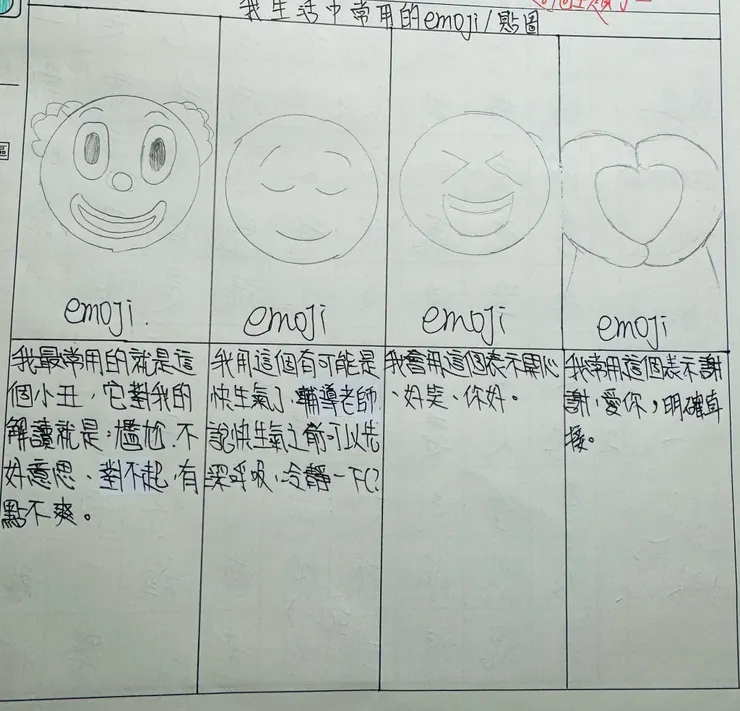 我生活中常用的emoji/貼圖
emoji.
emoji
emoji
emoji
我最常用的就是這
個小丑，它對我的
解讀就是：尷尬、不
好意思、對不起，有
點不爽。
我用這個有可能是
快生氣了，輔導老師
說快生氣之前可以先
深呼吸，冷靜一下(?
我會用這個表示開心
、好笑、你好。
我常用這個表示謝
謝，愛你，明確直
接。